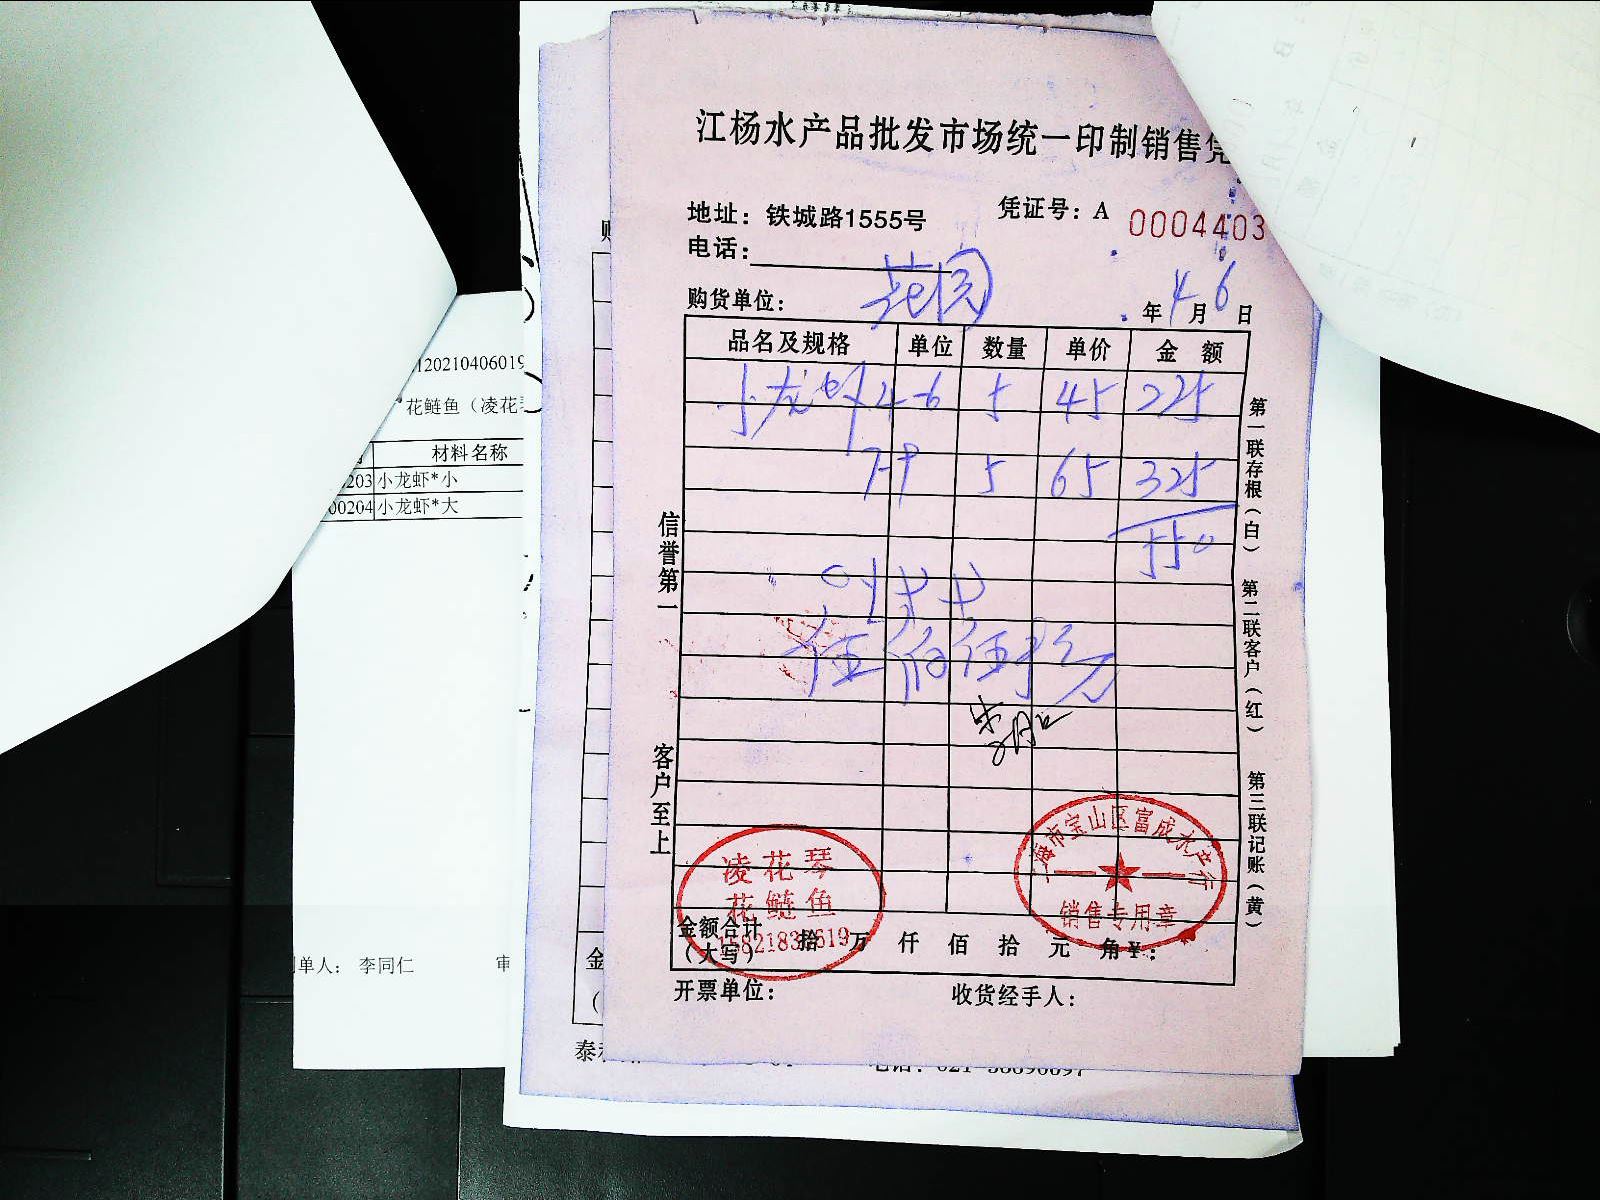 江杨水产品批发市场统一印制销售凭
地址：铁城路1555号
凭证号：A 0004403
电话：
购货单位： 花园
年 4 月 6 日
品名及规格 单位 数量 单价 金 额
小龙虾 4-6 5 45 225
7-9 5 65 325
550
伍佰伍拾元
信誉第一
客户至上
第一联存根（白）
第二联客户（红）
第三联记账（黄）
凌花琴
花鲢鱼
上海市宝山区富成水产行
销售专用章
金额合计（大写） 拾 万 仟 佰 拾 元 角 ¥：
开票单位：
收货经手人：
120210406019
花鲢鱼（凌花
材料名称
203 小龙虾*小
00204 小龙虾*大
单人： 李同仁
审
金
泰